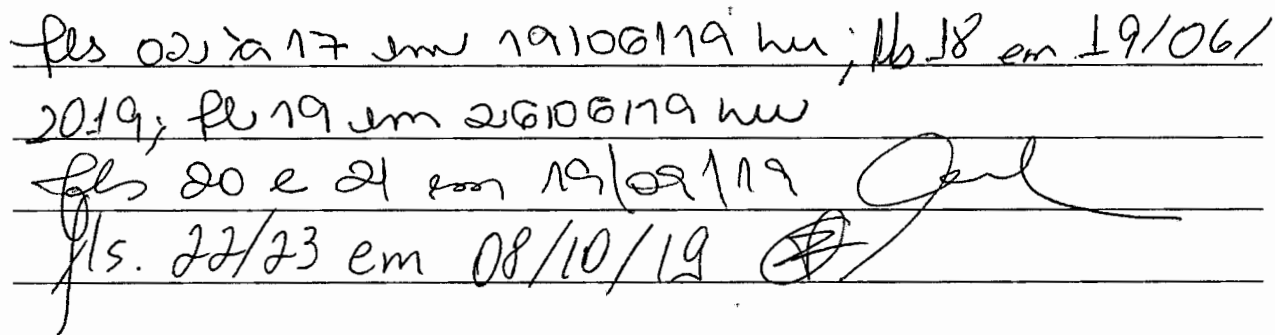 fls 02 à 17 em 19/06/19 hu; fls 18 em 19/06/
2019; fl 19 em 26/06/19 hu
fls 20 e 21 em 19/09/19
fls. 22/23 em 08/10/19